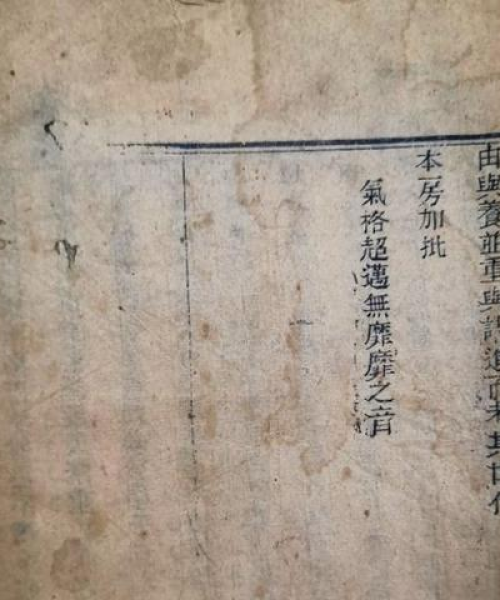 由與養並重典
本房加批
氣格超邁無靡靡之音